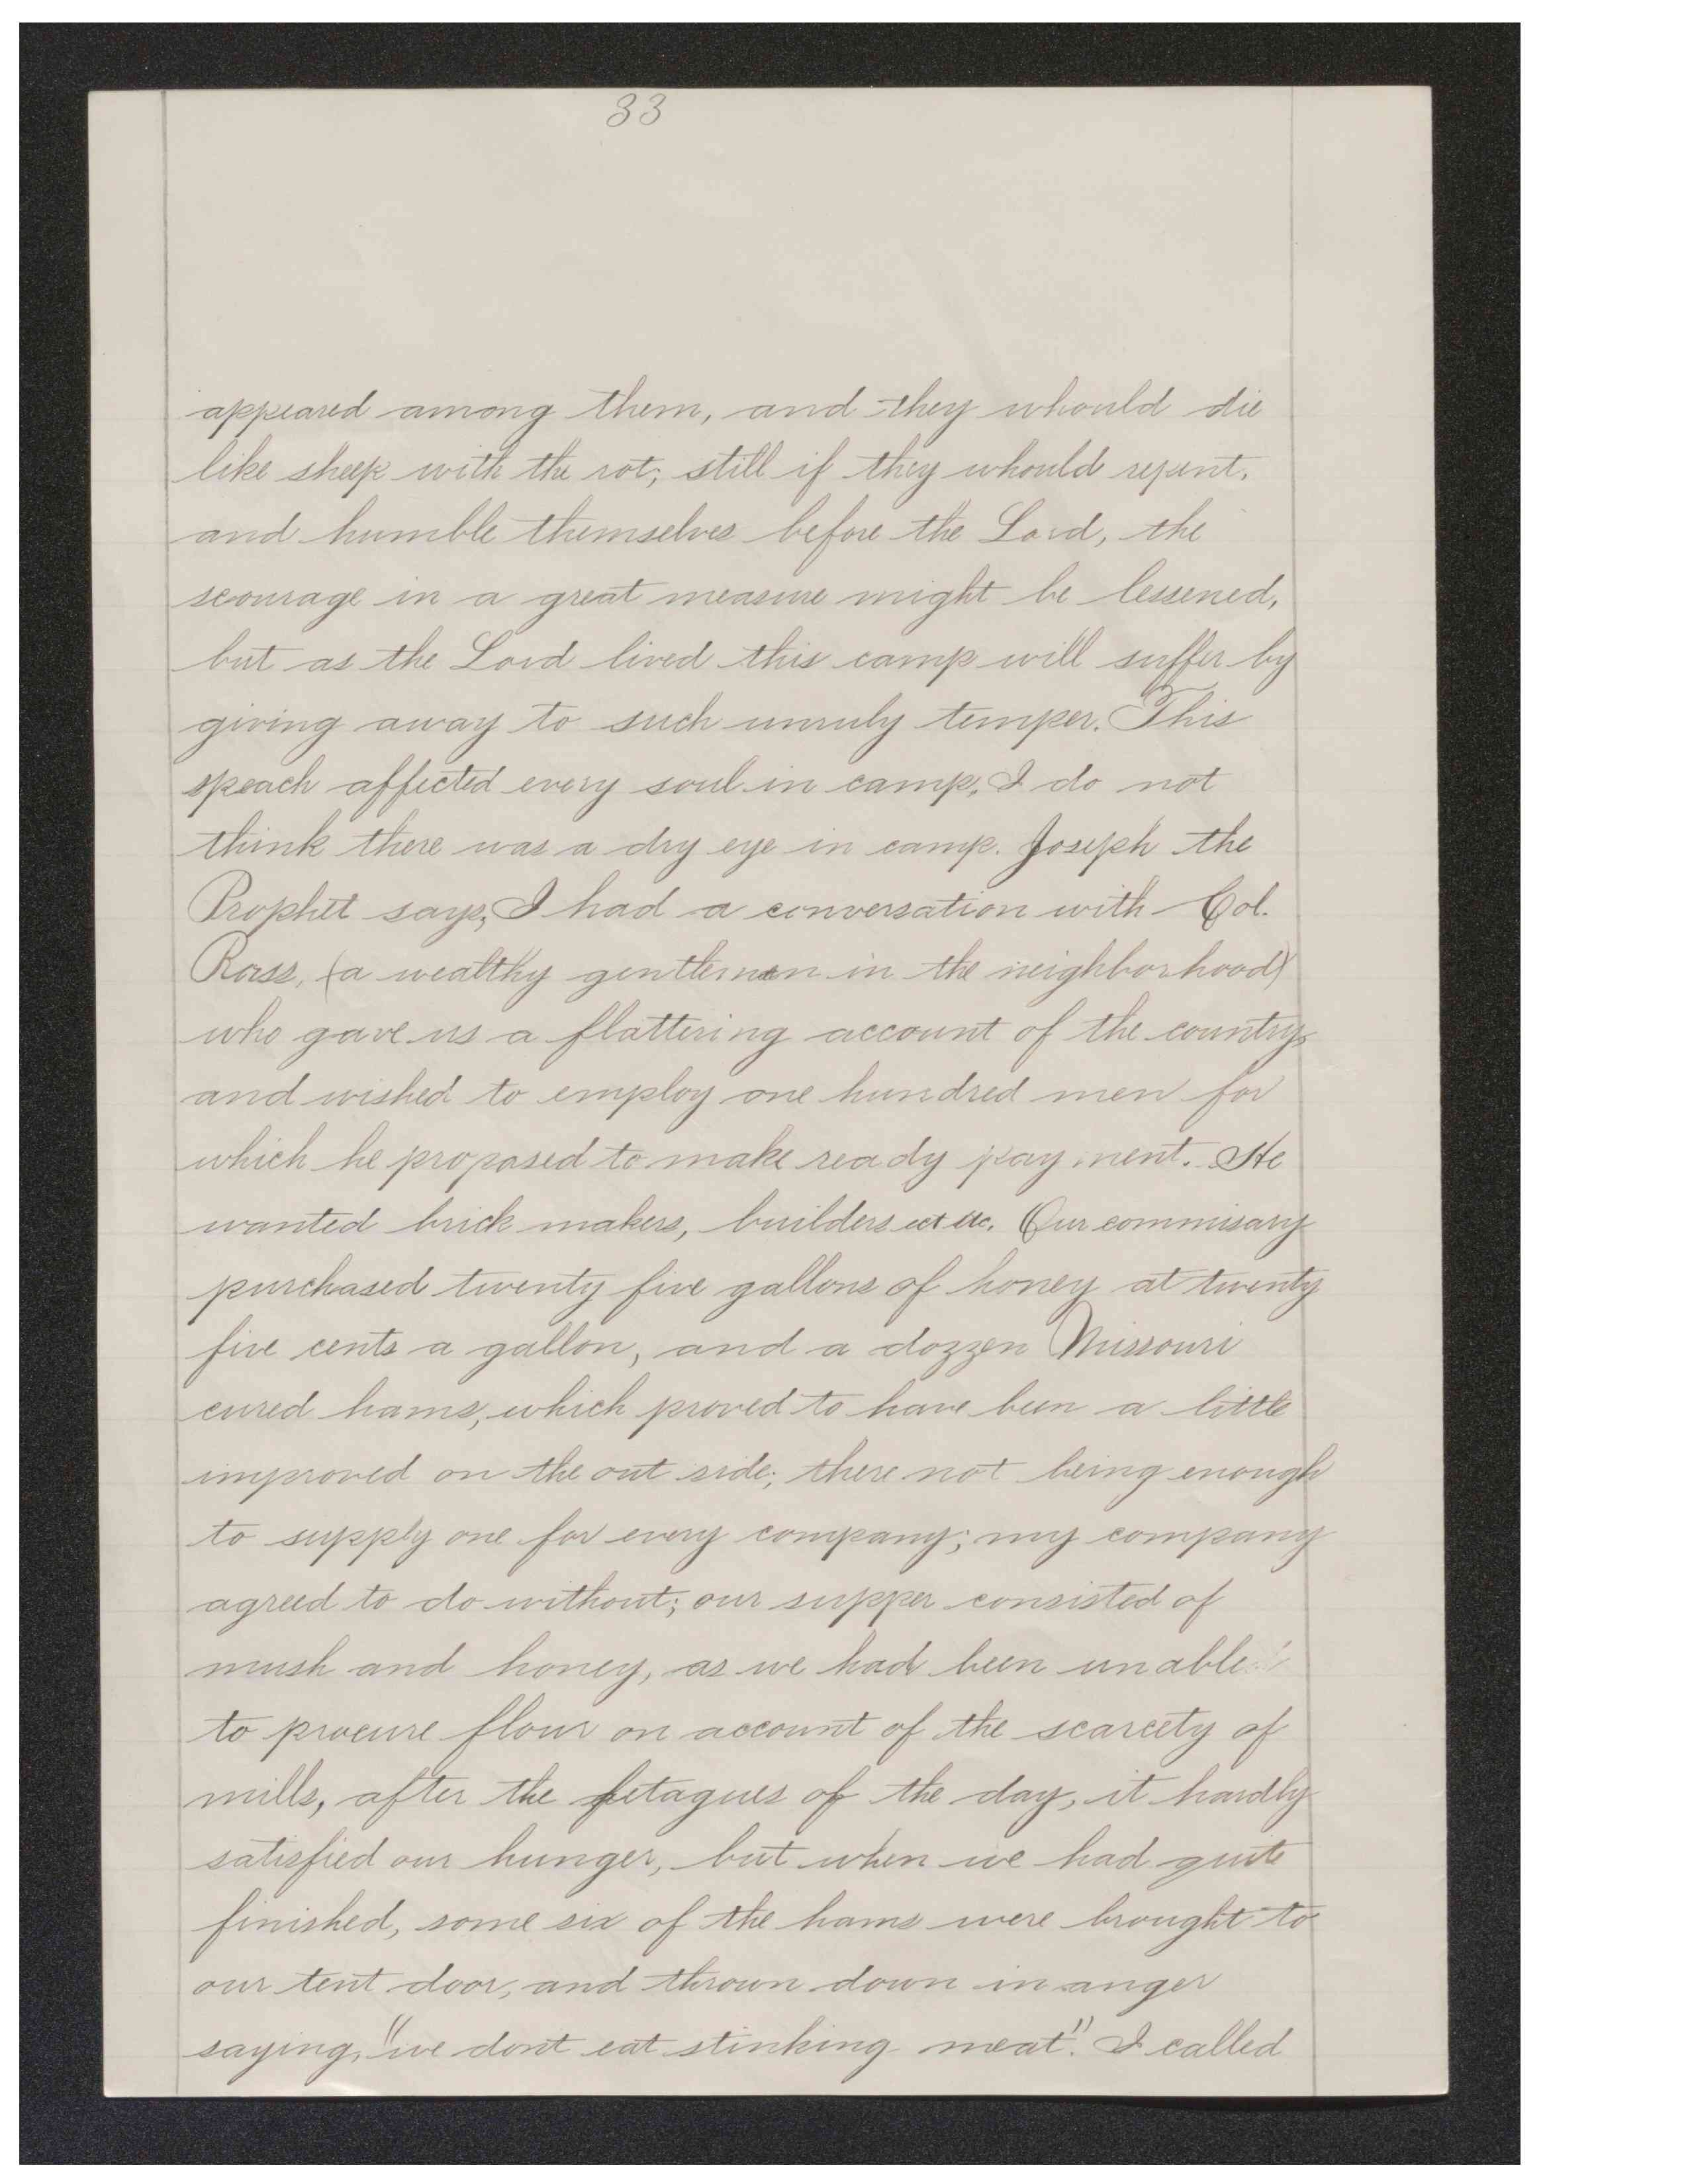 33
appeared among them, and they whould die
like sheep with the rot; still if they whould repent,
and humble themselves before the Lord, the
scourage in a great measure might be lessened,
but as the Lord lived this camp will suffer by
giving away to such unruly temper. This
speach affected every soul in camp, I do not
think there was a dry eye in camp. Joseph the
Prophet says, I had a conversation with Col.
Ross, (a wealthy gentleman in the neighborhood)
who gave us a flattering account of the country,
and wished to employ one hundred men for
which he proposed to make ready payment. He
wanted brick makers, builders ect etc. Our commisary
purchased twenty five gallons of honey at twenty
five cents a gallon, and a dozzen Missouri
cured hams, which proved to have been a little
improved on the out side; there not being enough
to supply one for every company; my company
agreed to do without; our supper consisted of
mush and honey, as we had been unable
to procure flour on account of the scarcety of
mills, after the fetagues of the day, it hardly
satisfied our hunger, but when we had quite
finished, some six of the hams were brought to
our tent door, and thrown down in anger
saying, "we dont eat stinking meat". I called